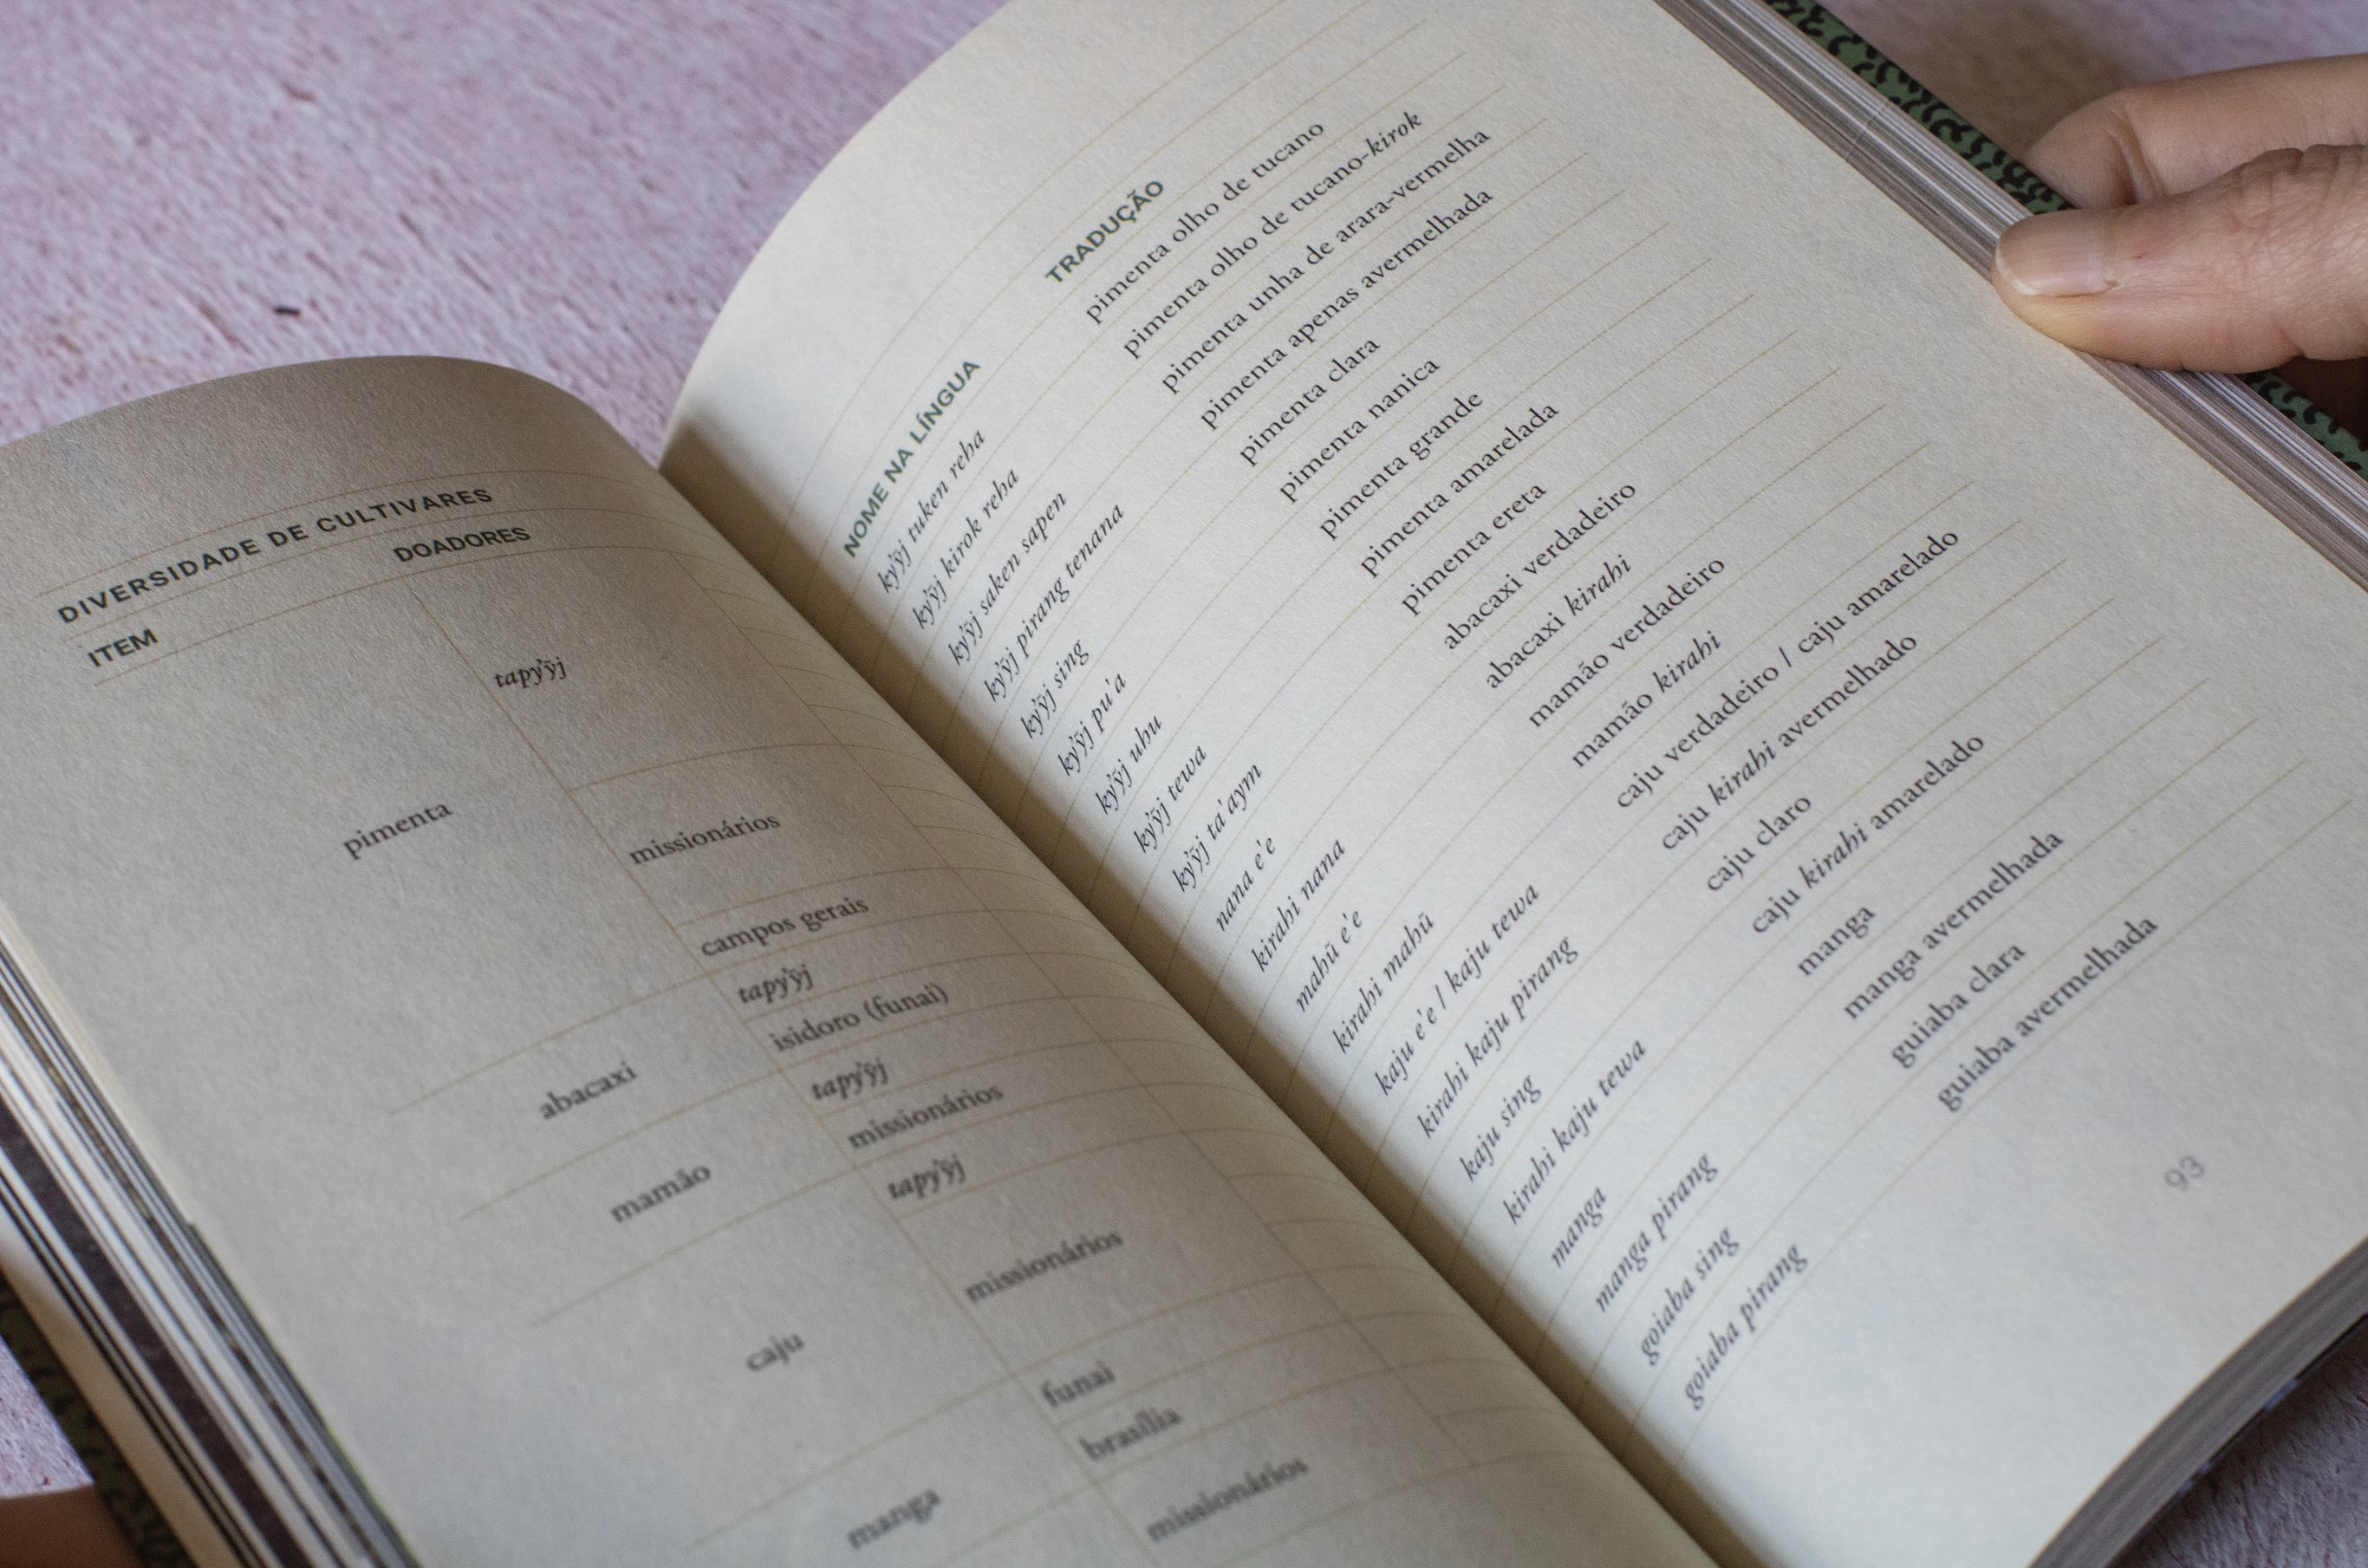 DIVERSIDADE DE CULTIVARES
ITEM DOADORES
pimenta
tapy'ỹj
missionários
campos gerais
abacaxi
tapy'ỹj
isidoro (funai)
mamão
tapy'ỹj
missionários
caju
tapy'ỹj
missionários
funai
manga
brasília
missionários
NOME NA LÍNGUA TRADUÇÃO
ky'ỹj tuken reha pimenta olho de tucano
ky'ỹj kirok reha pimenta olho de tucano-kirok
ky'ỹj saken sapen pimenta unha de arara-vermelha
ky'ỹj pirang tenana pimenta apenas avermelhada
ky'ỹj sing pimenta clara
ky'ỹj pu'a pimenta nanica
ky'ỹj uhu pimenta grande
ky'ỹj tewa pimenta amarelada
ky'ỹj ta'aym pimenta ereta
nana e'e abacaxi verdadeiro
kirahi nana abacaxi kirahi
mahũ e'e mamão verdadeiro
kirahi mahũ mamão kirahi
kaju e'e / kaju tewa caju verdadeiro / caju amarelado
kirahi kaju pirang caju kirahi avermelhado
kaju sing caju claro
kirahi kaju tewa caju kirahi amarelado
manga manga
manga pirang manga avermelhada
goiaba sing guiaba clara
goiaba pirang guiaba avermelhada
93